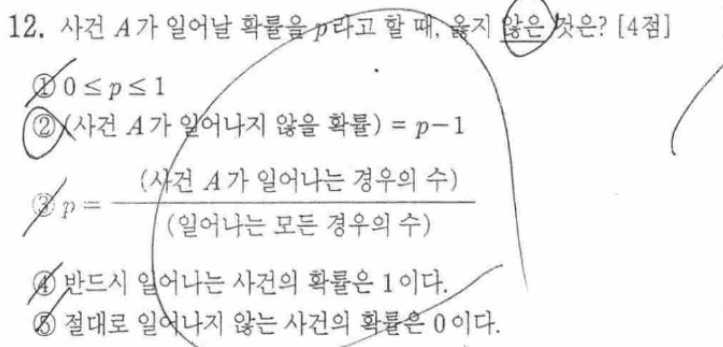 12. 사건 A가 일어날 확률을 p라고 할 때, 옳지 않은 것은? [4점]
① 0 ≤ p ≤ 1
② (사건 A가 일어나지 않을 확률) = p-1
③ p = (사건 A가 일어나는 경우의 수)
(일어나는 모든 경우의 수)
④ 반드시 일어나는 사건의 확률은 1이다.
⑤ 절대로 일어나지 않는 사건의 확률은 0이다.